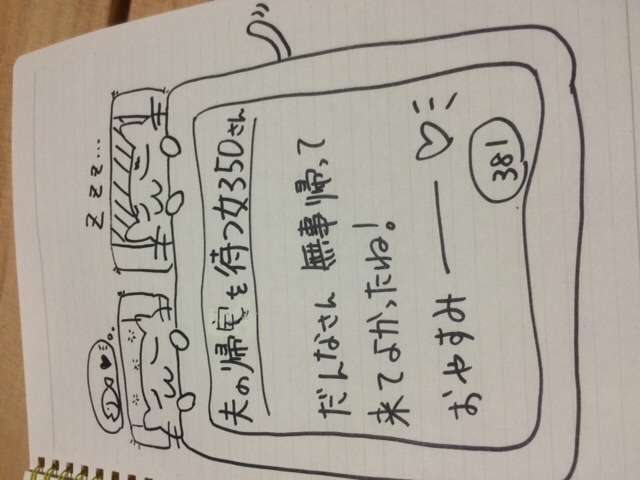 zzz...
夫の帰宅を待つ女350さん
だんなさん 無事帰って
来てよかったね!
おやすみ——♡
381